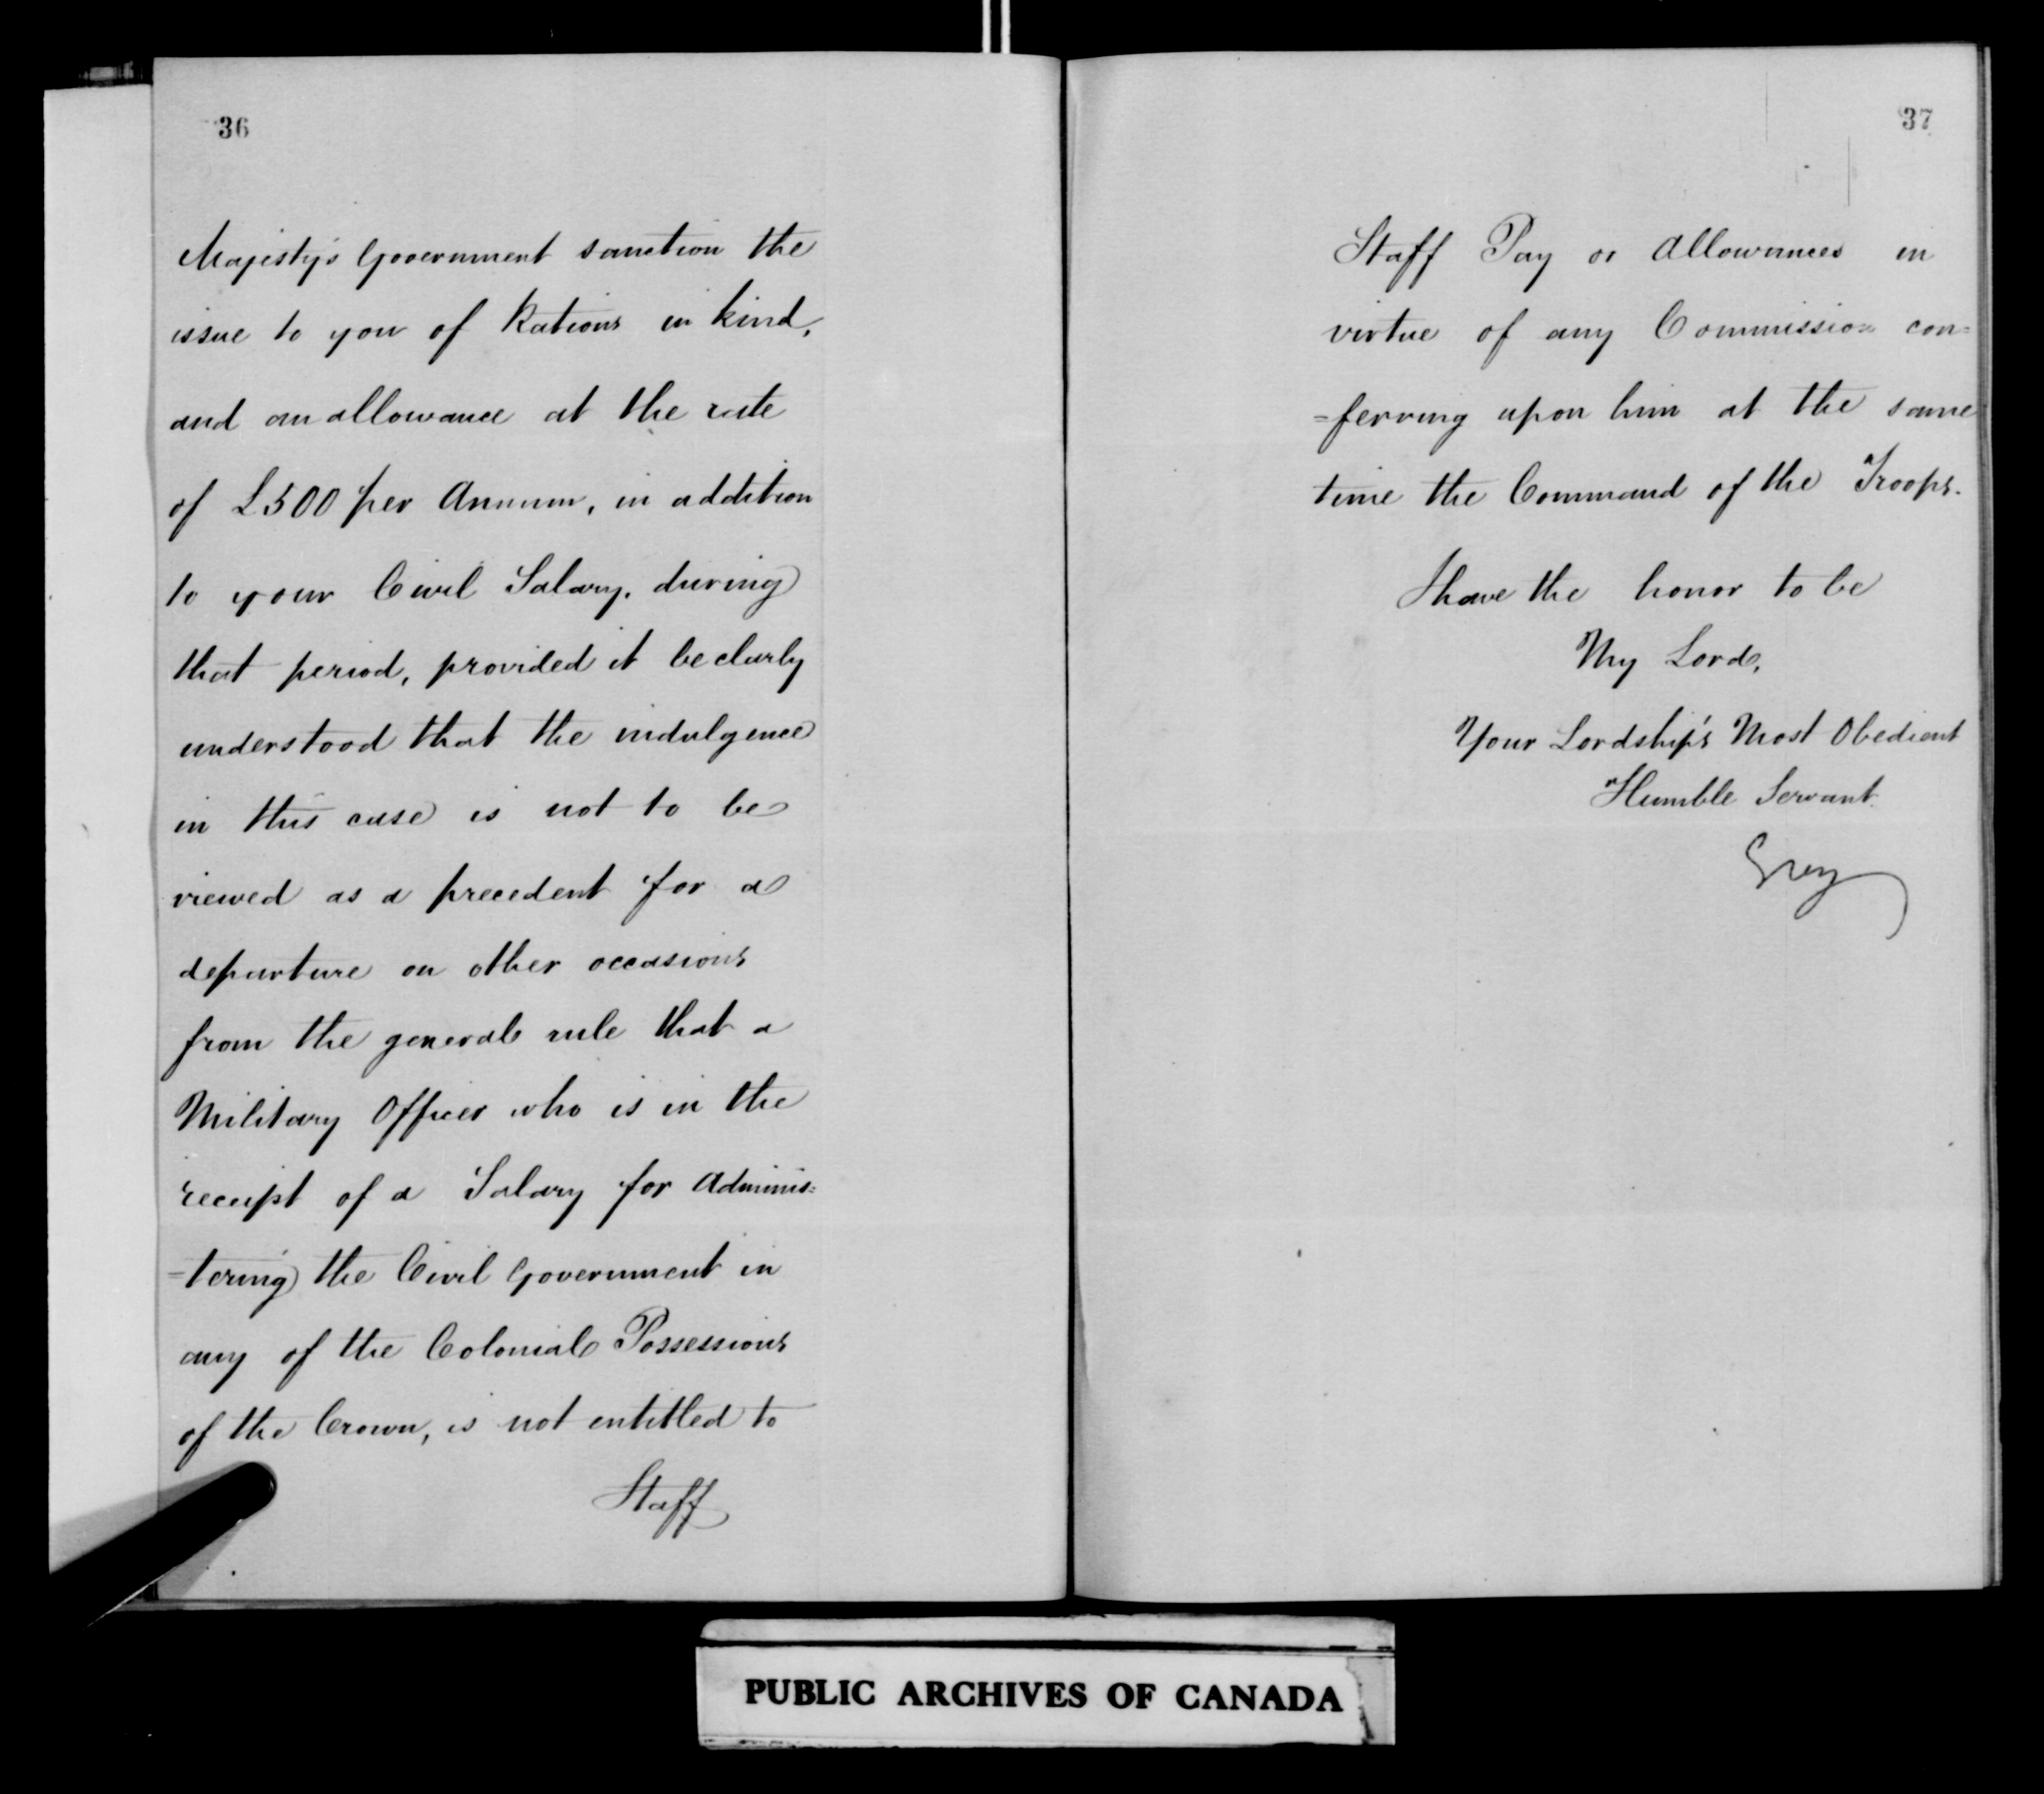 36
Majesty's Government sanction the
issue to you of Rations in kind,
and an allowance at the rate
of £500 per Annum, in addition
to your Civil Salary, during
that period, provided it be clearly
understood that the indulgence
in this case is not to be
viewed as a precedent for a
departure on other occasions
from the general rule that a
Military Officer who is in the
receipt of a Salary for Adminis=
=tering the Civil Government in
any of the Colonial Possessions
of the Crown, is not entitled to
Staff
37
Staff Pay or Allowances in
virtue of any Commission con=
=ferring upon him at the same
time the Command of the Troops.
I have the honor to be
My Lord,
Your Lordship's Most Obedient
Humble Servant
Grey
PUBLIC ARCHIVES OF CANADA